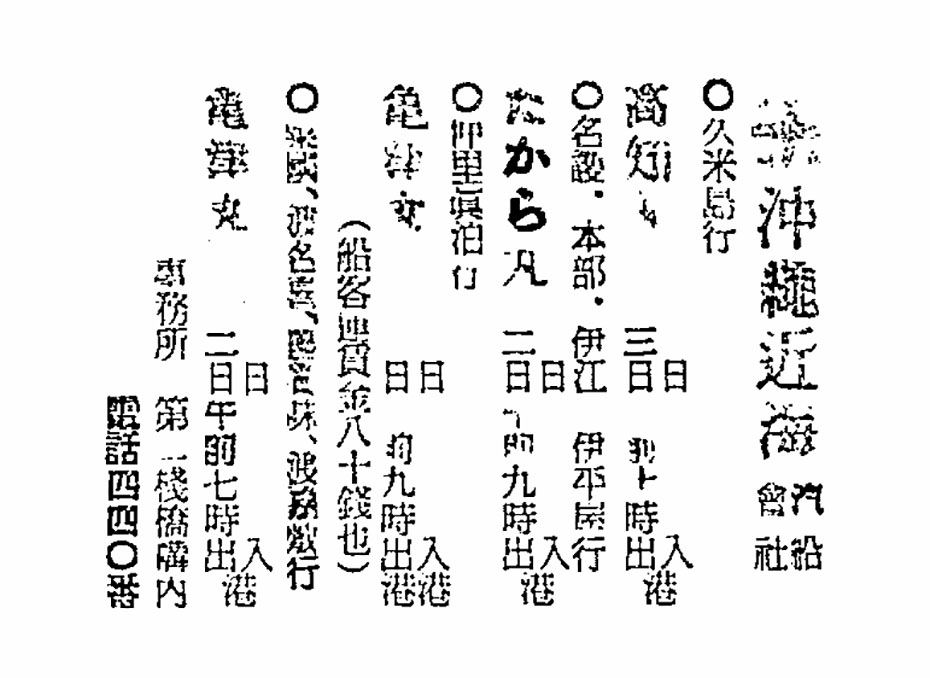 沖繩近海汽船會社
○久米島行
高知丸 三日 日 前十時出 入港
○名護、本部、伊江 伊平屋行
たから丸 二日 日 午前九時出 入港
○仲里眞泊行
亀津丸 日 日 前九時出港 入港
(船客運賃金八十錢也)
○
亀津丸 二日 日 午前七時出 入港
事務所 第一棧橋構内
電話四四〇番